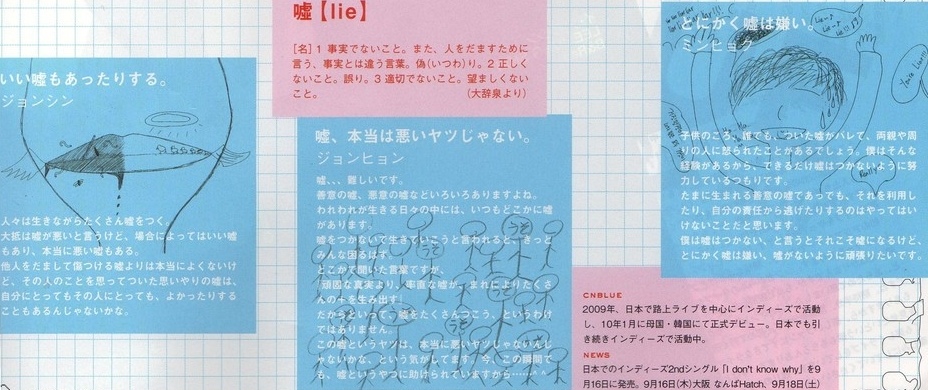 嘘【lie】
[名] 1 事実でないこと。また、人をだますために
言う、事実とは違う言葉。偽(いつわ)り。2 正しく
ないこと。誤り。3 適切でないこと。望ましくない
こと。（大辞泉より）
いい嘘もあったりする。
ジョンシン
人々は生きながらたくさん嘘をつく。
大抵は嘘が悪いと言うけど、場合によってはいい嘘
もあり、本当に悪い嘘もある。
他人をだまして傷つける嘘よりは本当によくないけ
ど、その人のことを思ってついた思いやりの嘘は、
自分にとってもその人にとっても、よかったりする
こともあるんじゃないかな。
嘘、本当は悪いヤツじゃない。
ジョンヒョン
嘘、、、難しいです。
善意の嘘、悪意の嘘などいろいろありますよね。
われわれが生きる日々の中には、いつもどこかに嘘
があります。
嘘をつかないで生きていこうと言われると、きっと
みんな困るはず。
どこかで聞いた言葉ですが、
「頑固な真実より、率直な嘘が、まれによりたくさ
んの＋を生み出す」
だからといって、嘘をたくさんつこう、というわけ
ではありません。
この嘘というヤツは、本当に悪いヤツじゃないんじ
ゃないかな、という気がしてます。今、この瞬間で
も、嘘というやつに助けられていますから……^ ^
とにかく嘘は嫌い。
ミンヒョク
子供のころ、誰でも、ついた嘘がバレて、両親や周
りの人に怒られたことがあるでしょう。僕はそんな
経験があるから、できるだけ嘘はつかないように努
力しているつもりです。
たまに生まれる善意の嘘であっても、それを利用し
たり、自分の責任から逃げたりするのはやってはい
けないことだと思います。
僕は嘘はつかない、と言うとそれこそ嘘になるけど、
とにかく嘘は嫌い、嘘がないように頑張りたいです。
CNBLUE
2009年、日本で路上ライブを中心にインディーズで活動
し、10年1月に母国・韓国にて正式デビュー。日本でも引
き続きインディーズで活動中。
NEWS
日本でのインディーズ2ndシングル「I don't know why」を9
月16日に発売。9月16日(木)大阪 なんばHatch、9月18日(土)